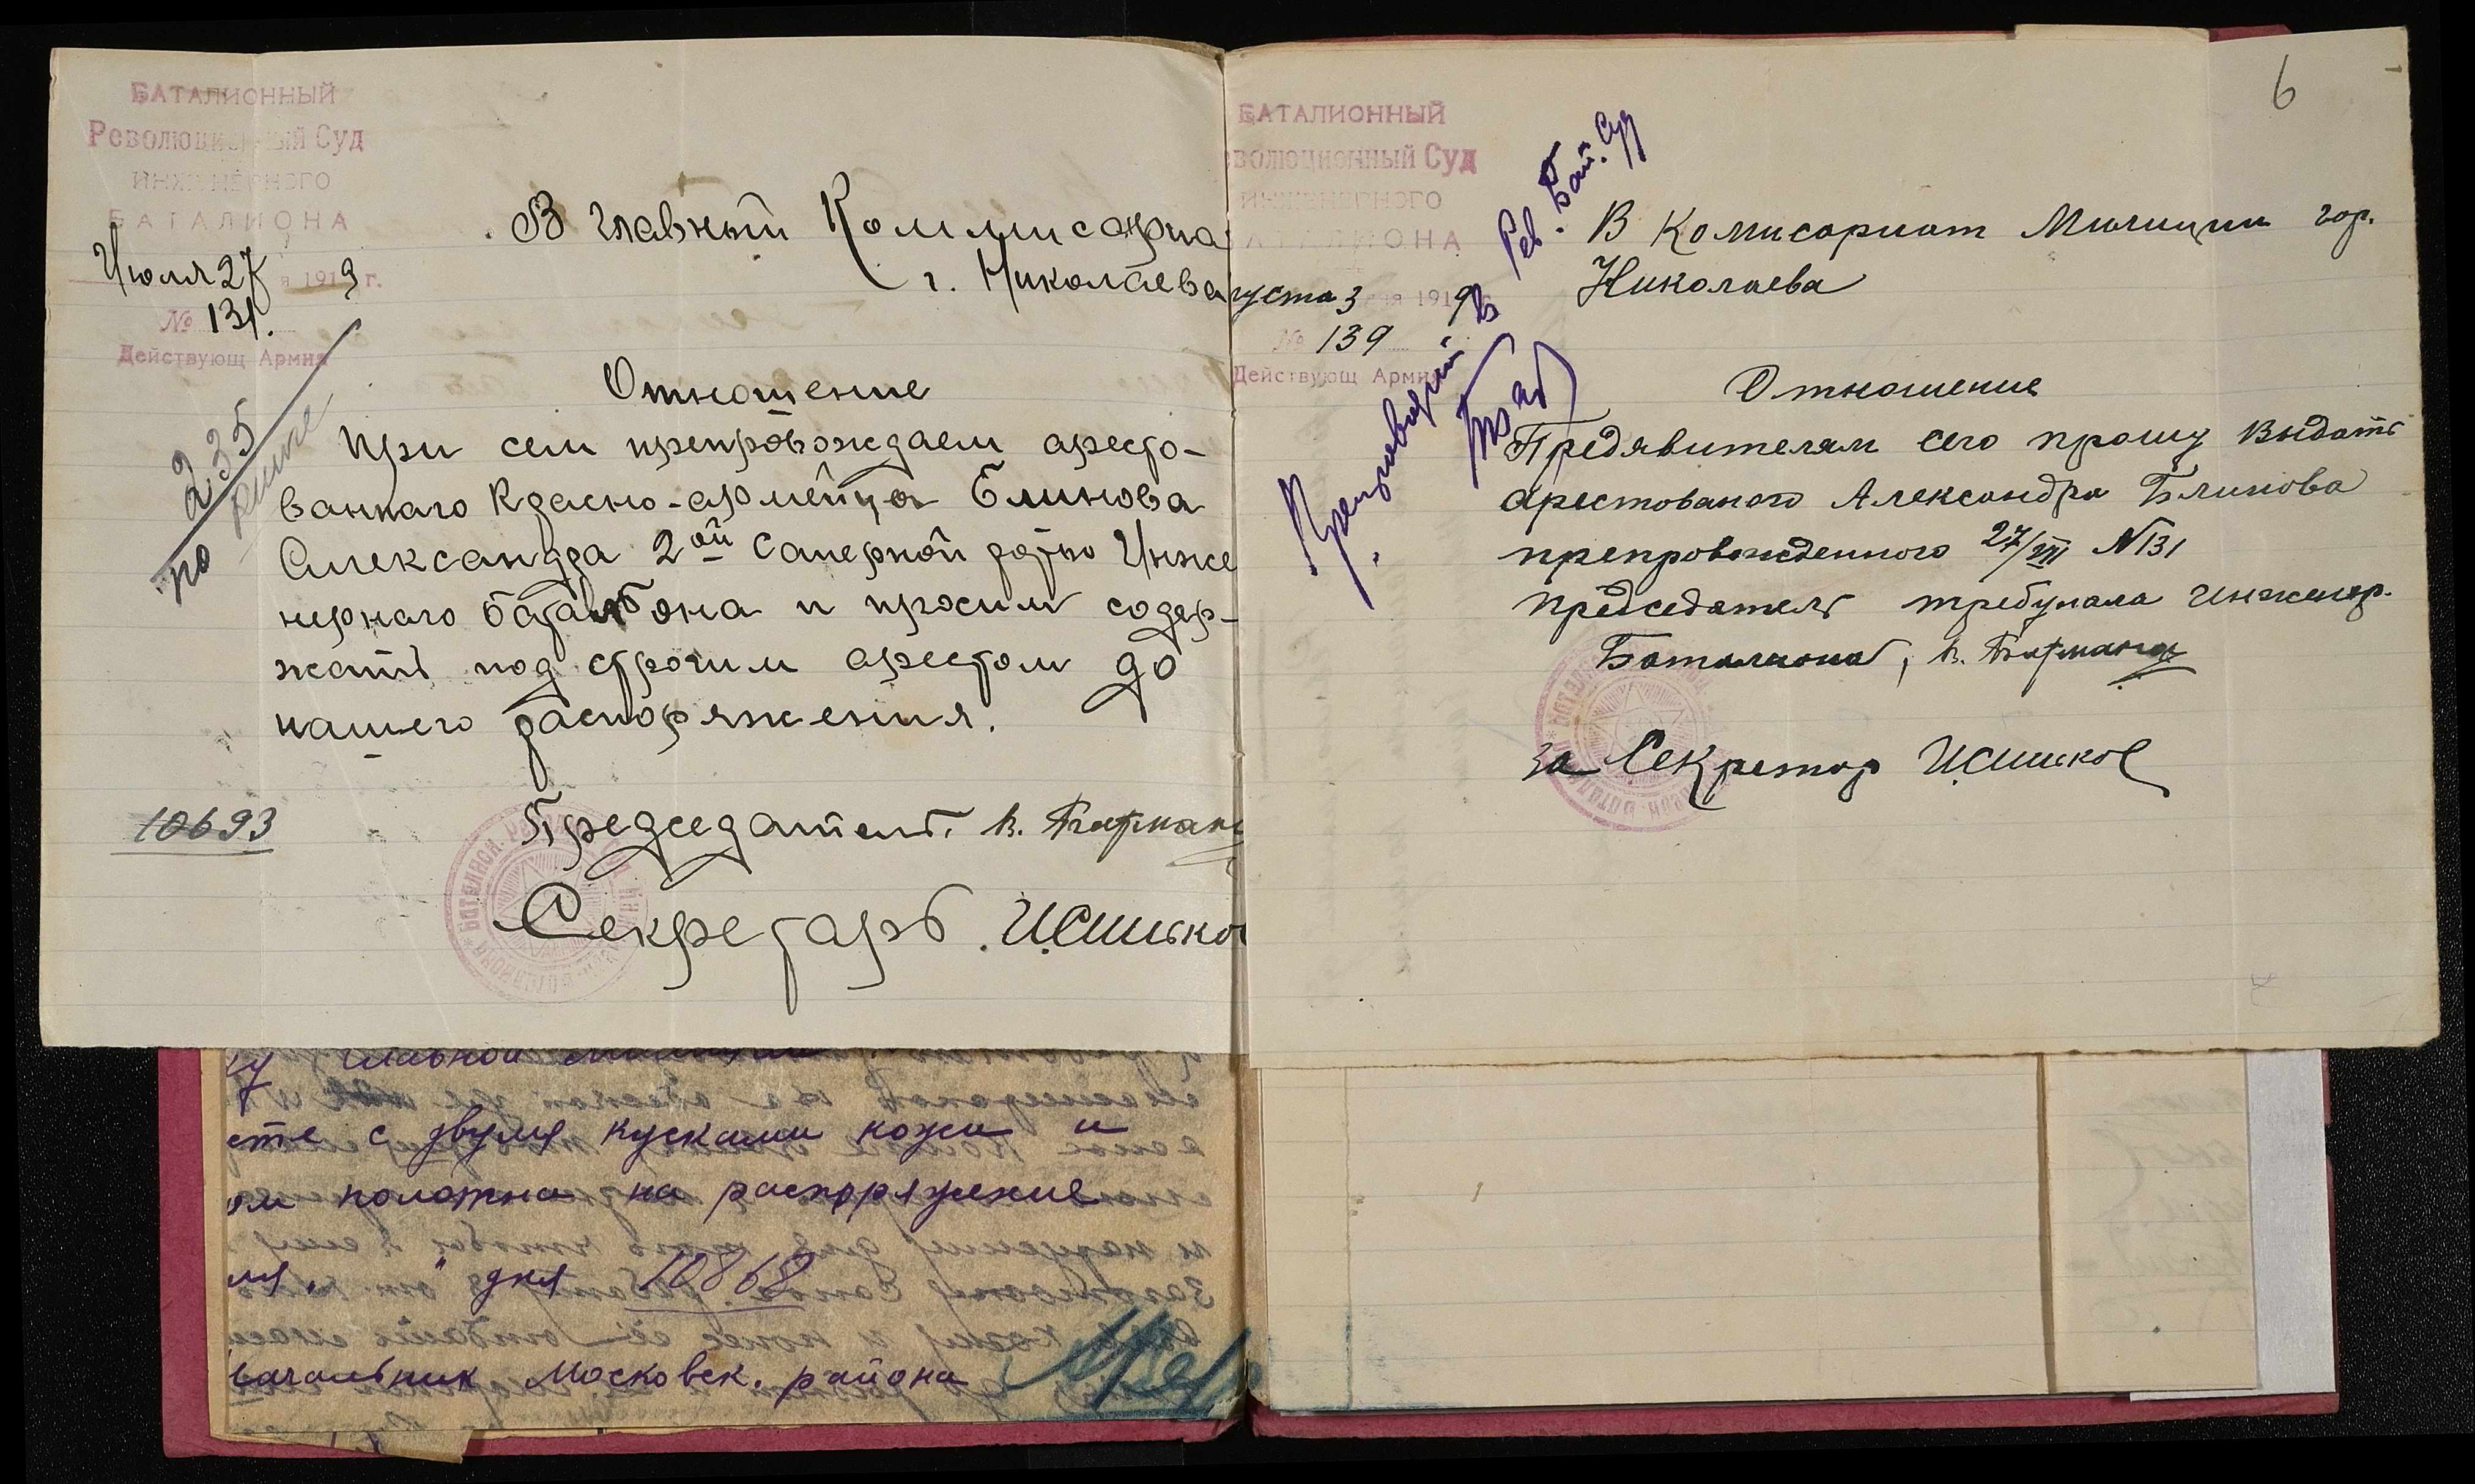 БАТАЛИОННЫЙ
Революционный Суд
ИНЖЕНЕРНОГО
БАТАЛИОНА
Июля 27 1919 г.
№ 131.
Действующ Армия
В главный Коммисариа
г. Николаева
235
по
Отношение
При сем препровождаем аресто-
ваннаго Красно-армейца Блинова
Александра 2ой Саперной роты Инже
нернаго баталиона и просим содер-
жать под строгим арестом до
нашего распоряжения.
10693
Председатель. В.
Секретарь. И.
6
БАТАЛИОННЫЙ
волюционный Суд
ИНЖЕНЕРНОГО
АТАЛИОНА
густа 3 1919
№ 139
Действующ Армия
Рев. Бат. Суд
В Комисариат Милиции гор.
Николаева
Отношение
Предявителям сего прошу выдать
арестованого Александра Блинова
препровожденного 27/VII N131
председатель трибунала инженер.
Баталиона, В.
за Секретар И.
у главной милиции
сте с двумя кусками кожи и
ом полотна на распоряжение
дня 10868
Начальник Московск. района